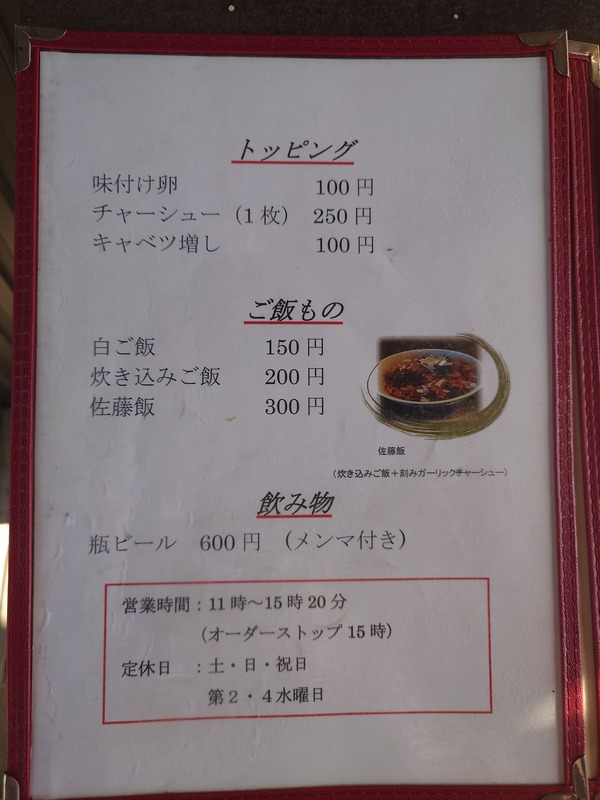 トッピング
味付け卵 100円
チャーシュー（1枚） 250円
キャベツ増し 100円
ご飯もの
白ご飯 150円
炊き込みご飯 200円
佐藤飯 300円
佐藤飯
（炊き込みご飯＋刻みガーリックチャーシュー）
飲み物
瓶ビール 600円 （メンマ付き）
営業時間：11時～15時20分
（オーダーストップ15時）
定休日 ：土・日・祝日
第２・４水曜日